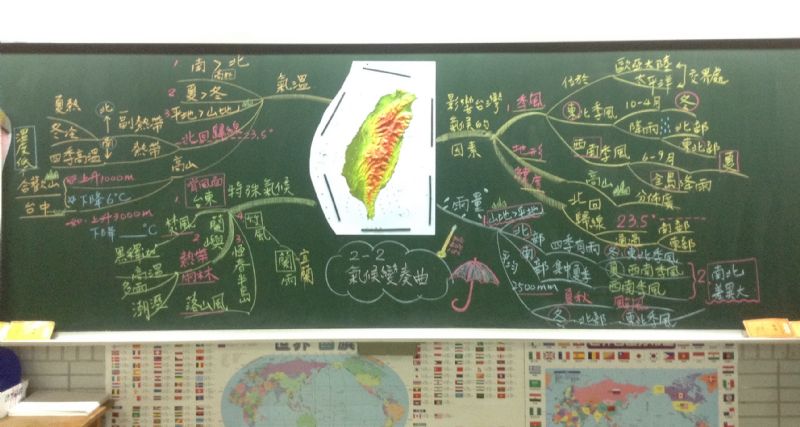 2-2
氣候變奏曲
氣溫
1 南 > 北
高山
2 夏 > 冬
3 平地 > 山地
北回歸線 23.5°
北
南
副熱帶
熱帶
夏熱
冬冷
四季高溫
高山
溫度低
合歡山
台中
上升1000m
下降6℃
上升3000m
下降___℃
特殊氣候
背風面
台東
焚風
1
蘭嶼
2
熱帶
雨林
高溫
潮溼
3
恆春半島
落山風
4
竹風
蘭雨
宜蘭
影響台灣
氣候的
因素
1 季風
位於
歐亞大陸
太平洋
交界處
東北季風
10-4月
冬
降雨
北部
東北部
西南季風
6-9月
夏
降雨
地形
高山
分佈廣
緯度
北回
歸線
23.5°
南部
東部
雨量
1 山地 > 平地
平均
2500mm
北部
四季有雨
冬 東北季風
夏 西南季風
南部
集中夏季
西南季風
夏秋
颱風
冬
北部
東北季風
2 南北
差異大
世界